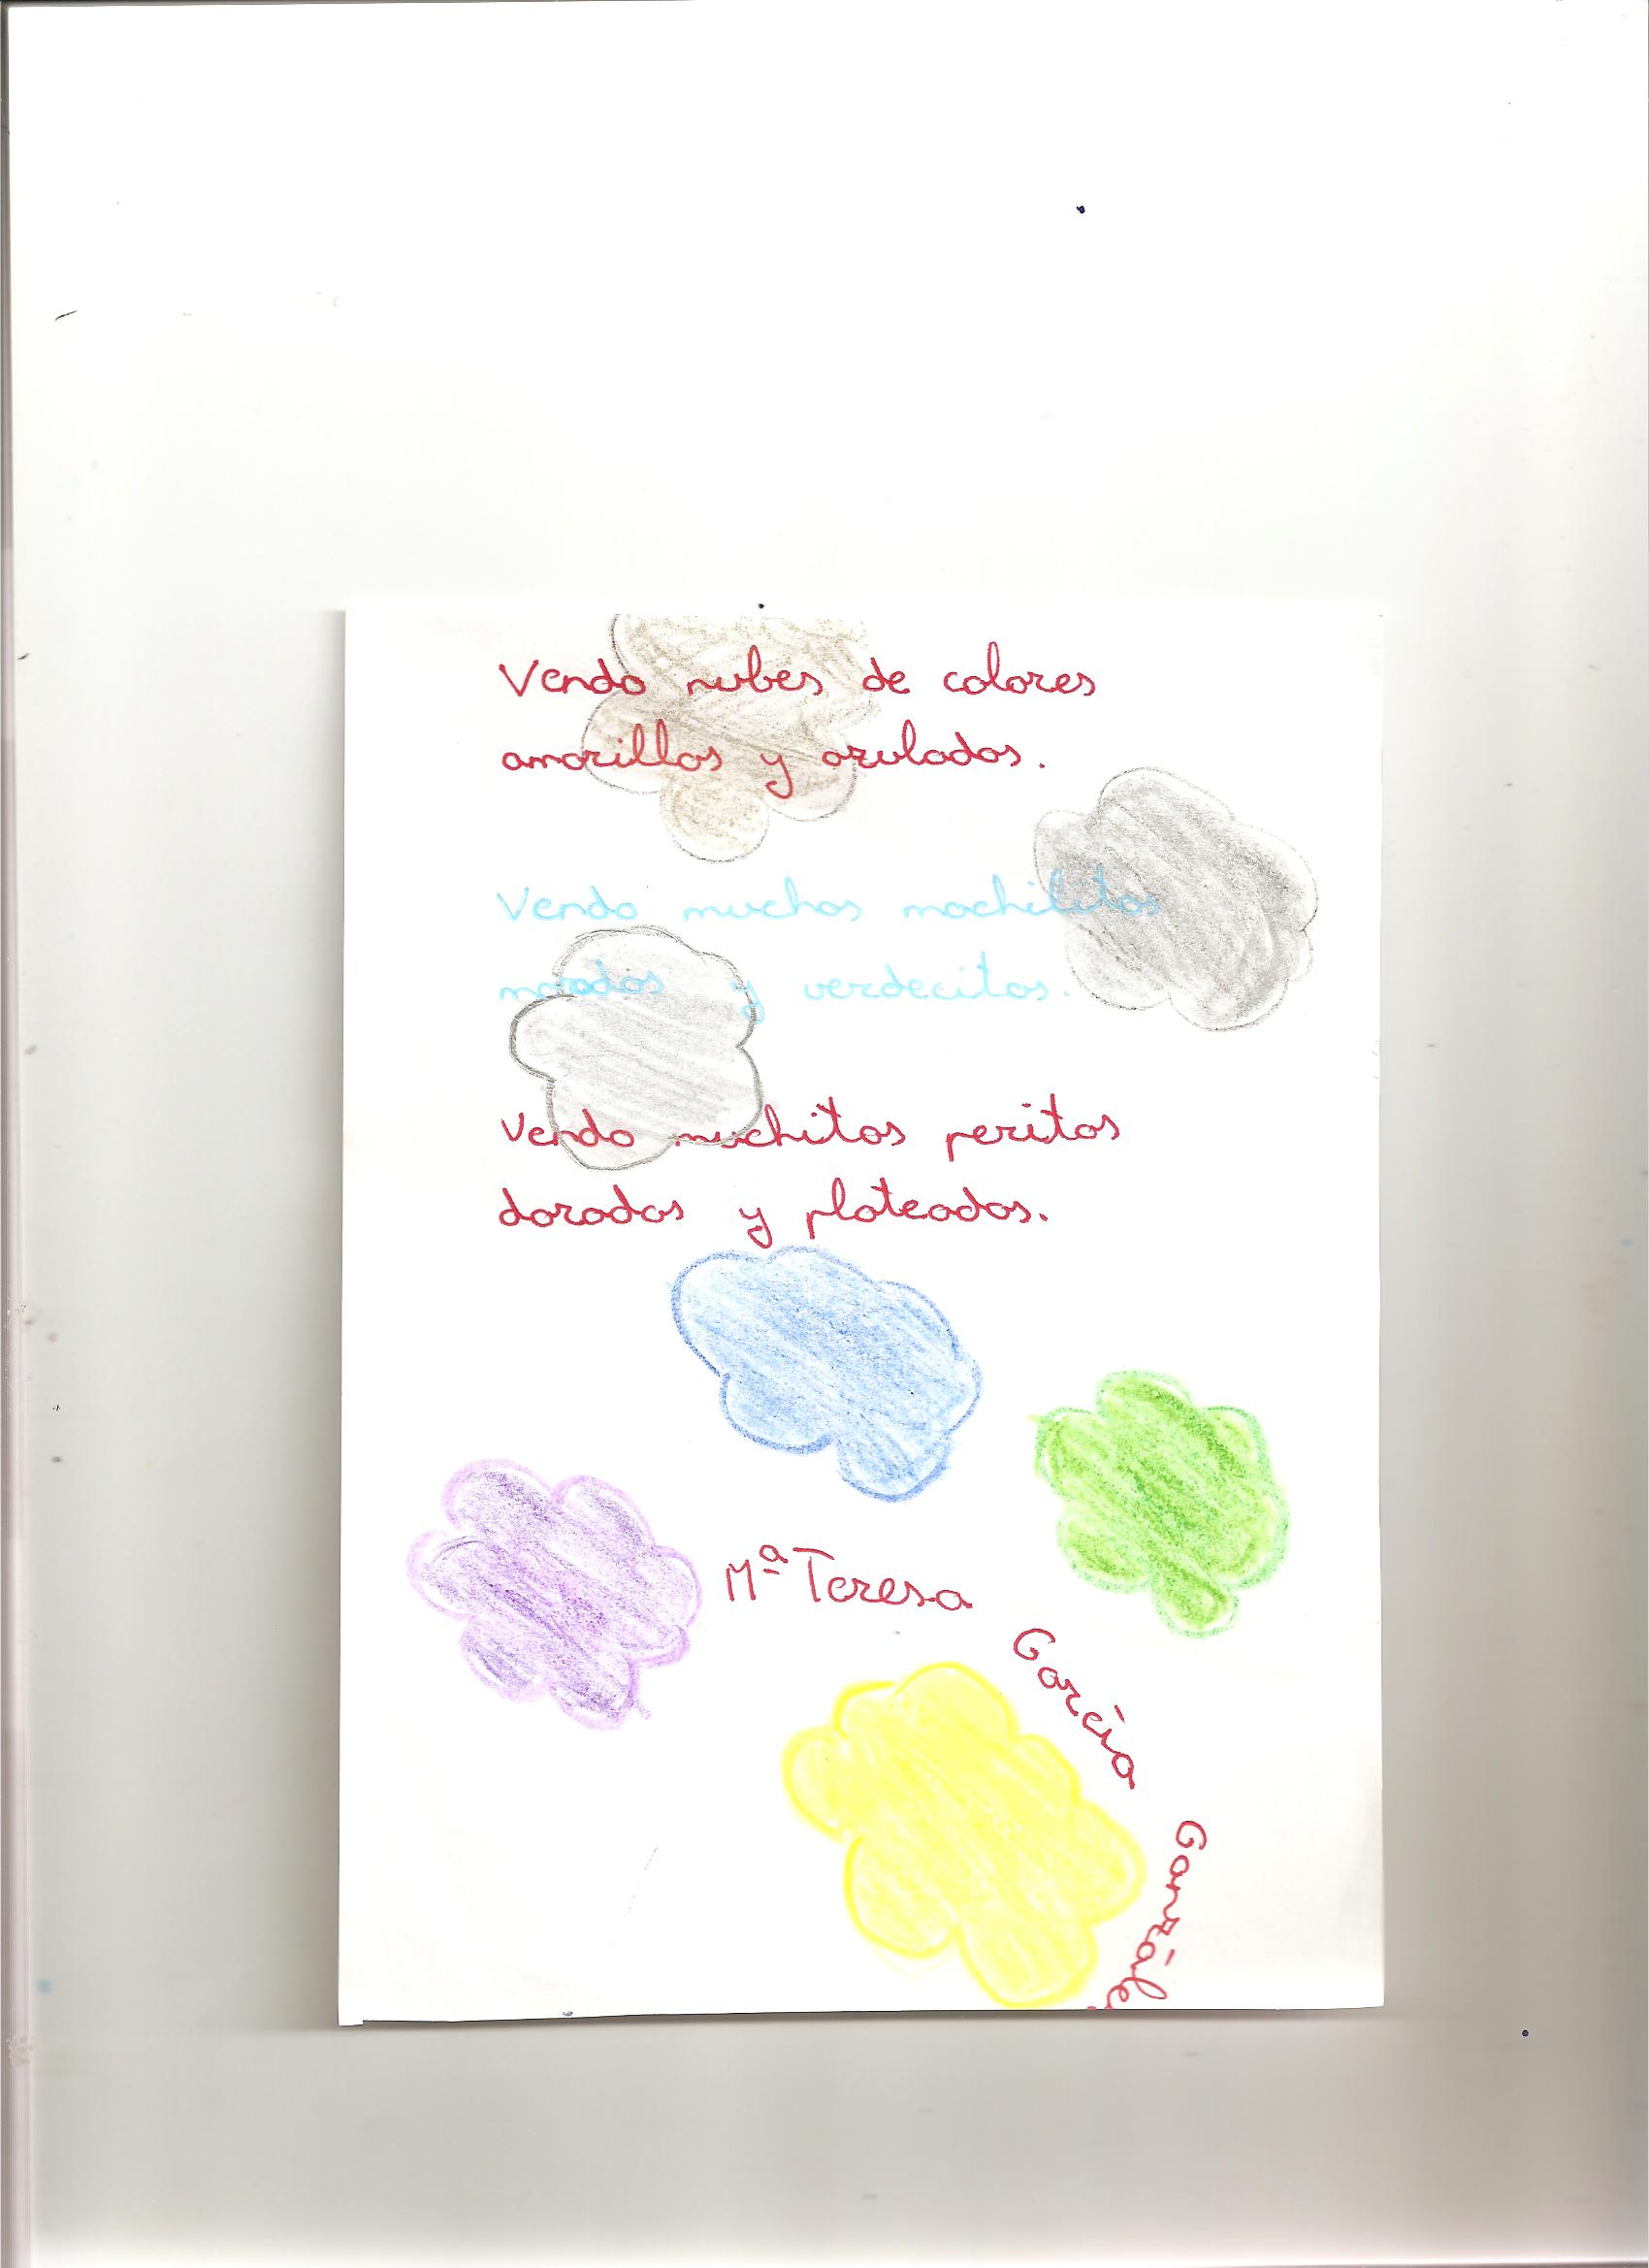 Vendo nubes de colores
amarillas y azuladas.
Vendo muchas mochilitas
moradas y verdecitas.
Vendo muchitas peritas
doradas y plateadas.
Mª Teresa
García
Gonzále